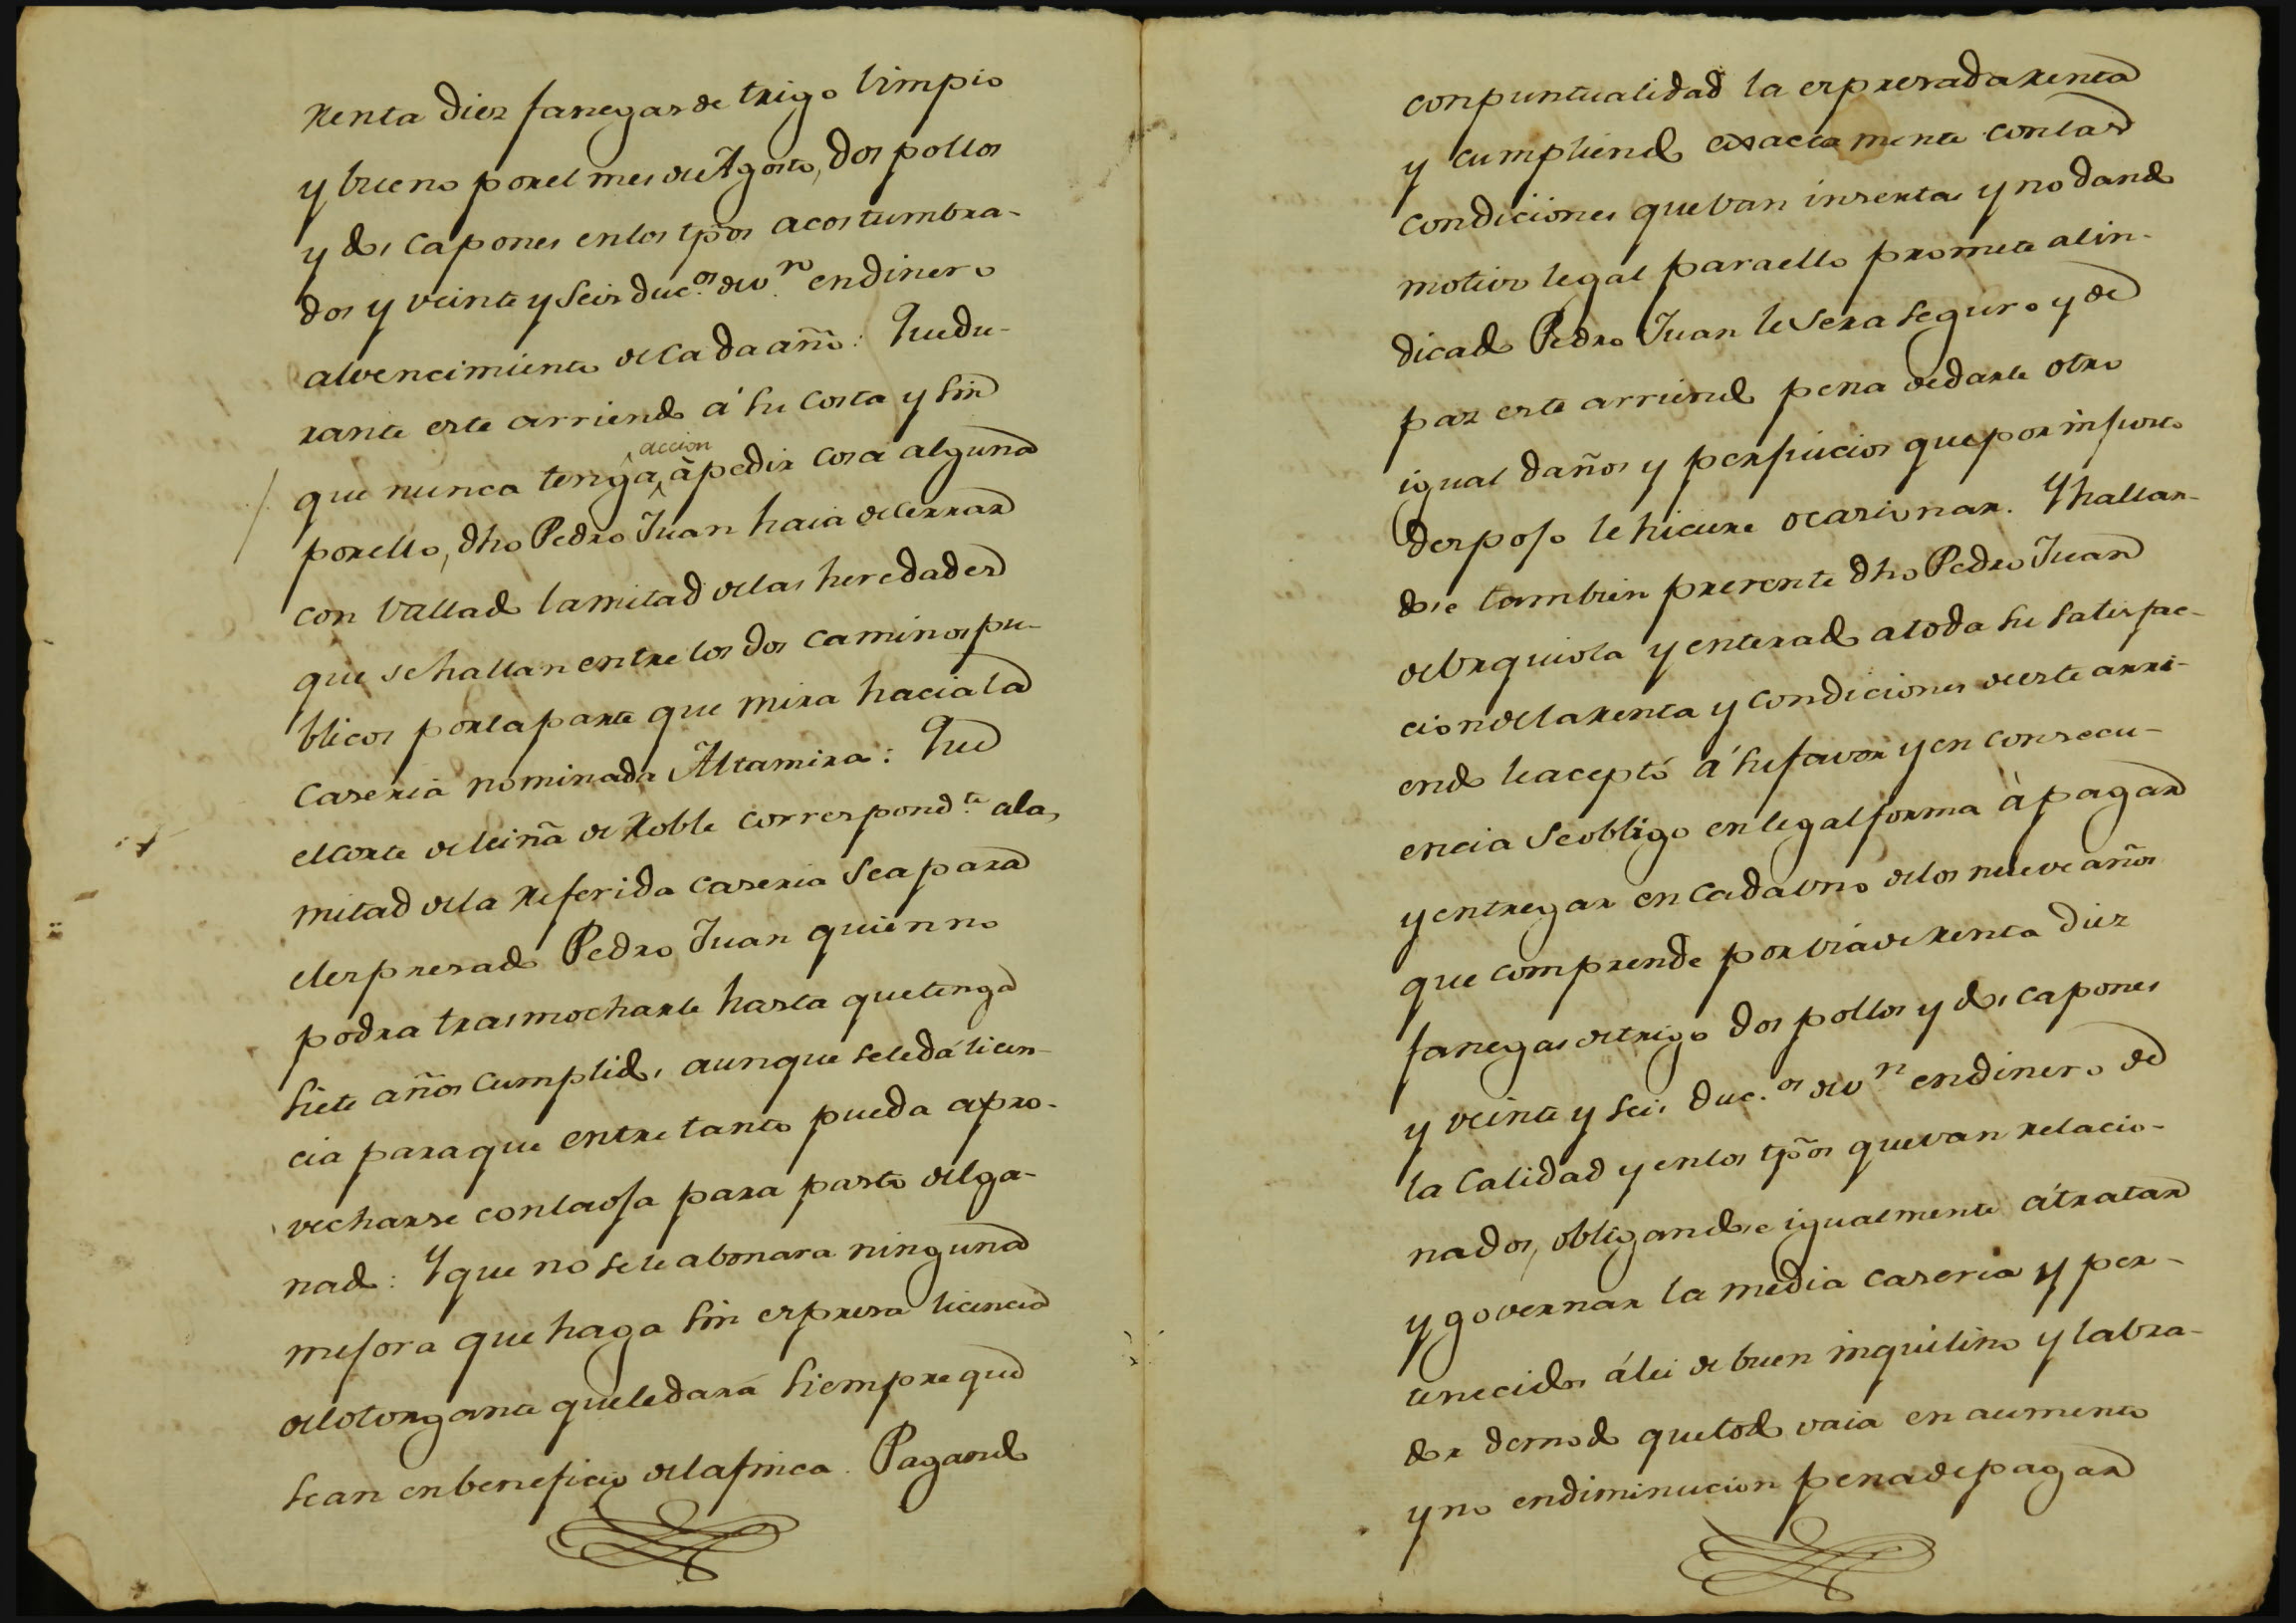 renta diez fanegas de trigo limpio
y bueno por el mes de Agosto, dos pollos
y dos capones en los tpõs acostumbra-
dos y veinte y seis duc.os de v.n en dinero
al vencimiento de cada año: Que du-
rante este arriendo á su costa y sin
que nunca tenga accion à pedir cosa alguna
por ello, dho Pedro Juan haia de cerrar
con vallado la mitad de las heredades
que se hallan entre los dos caminos pu-
blicos por la parte que mira hacia la
caseria nominada Altamira: Que
el corte de leiña de roble correspond.te a la
mitad de la referida caseria sea para
el espresado Pedro Juan quien no
podra trasmocharle hasta que tenga
siete años cumplidos, aunque se le dá licen-
cia para que entre tanto pueda apro-
vecharse con la oja para pasto del ga-
nado: Y que no se le abonara ninguna
mejora que haga sin espresa licencia
del otorgante que le dará siempre que
sean en beneficio de la finca. Pagando
con puntualidad la espresada renta
y cumpliendo exactamente con las
condiciones que van insertas y no dando
motivo legal para ello promete al in-
dicado Pedro Juan le sera seguro y de
paz este arriendo pena de darle otro
igual daños y perjuicios que por injusto
despojo le hiciere ocasionar. Y hallan-
dose tambien presente dho Pedro Juan
de Urquiola y enterado a toda su satisfac-
cion de la renta y condiciones de este arri-
endo le aceptó á su favor y en consecu-
encia se obligo en legal forma à pagar
y entregar en cada uno de los nueve años
que comprende por via de renta diez
fanegas de trigo dos pollos y dos capones
y veinte y seis duc.os de v.n en dinero de
la calidad y en los tpõs que van relacio-
nados, obligandose igualmente á tratar
y governar la media caseria y per-
tenecidos á lei de buen inquilino y labra-
dor de modo que todo vaia en aumento
y no en diminucion pena de pagar